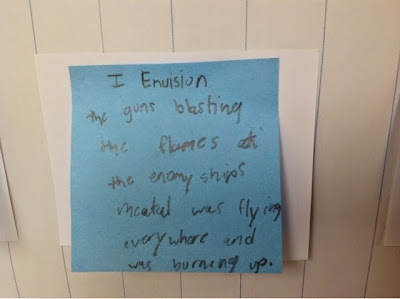 I Envision
the guns blasting
the flames
the enemy ships
meatal was flying
everywhere and
was burning up.